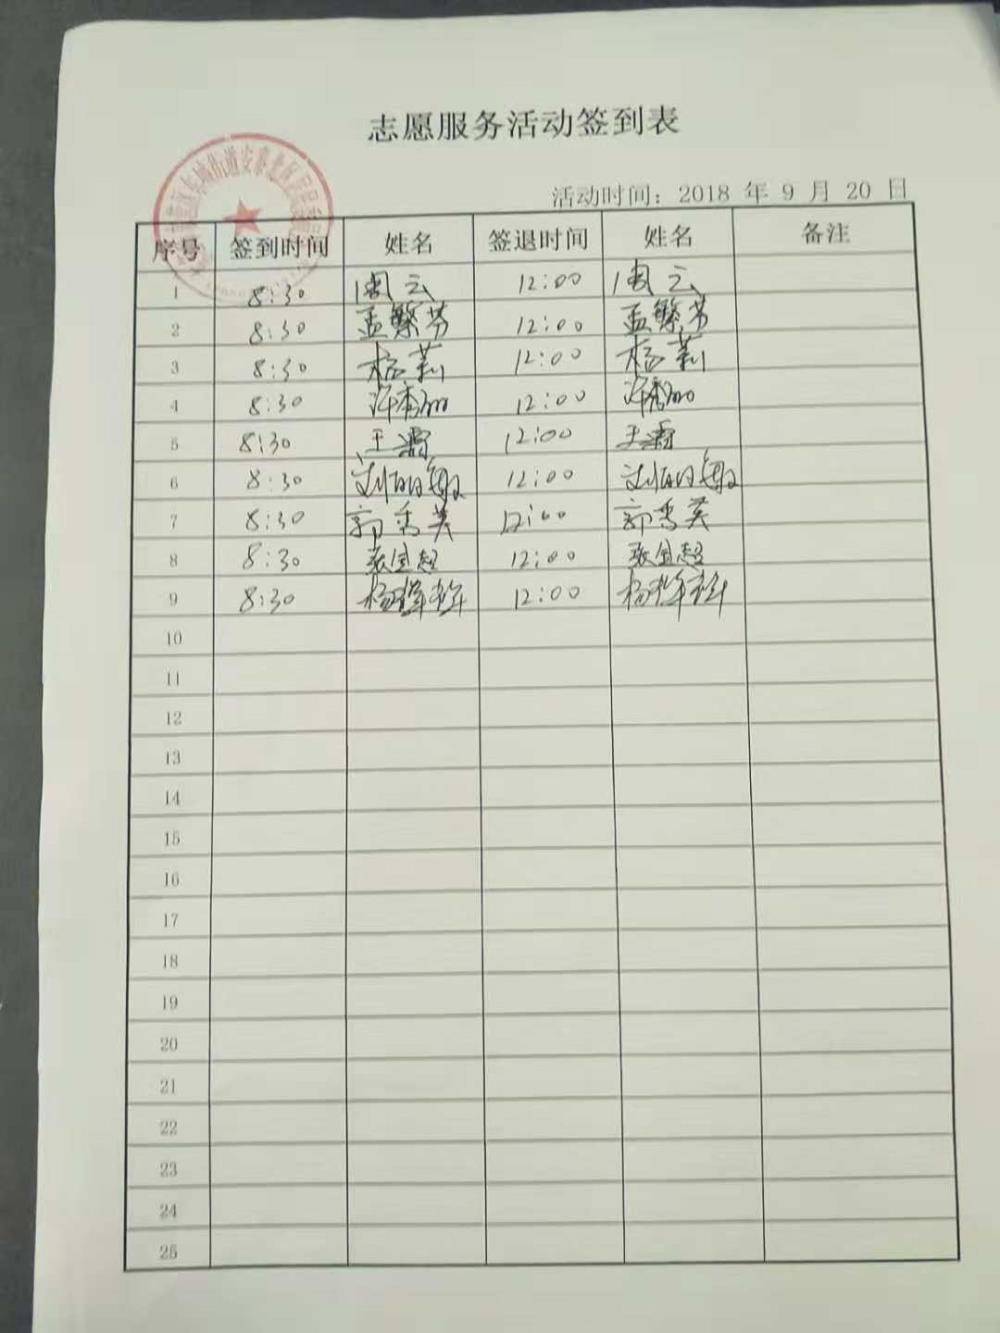 志愿服务活动签到表
活动时间：2018 年 9 月 20 日
序号 签到时间 姓名 签退时间 姓名 备注
1 8:30 周云 12:00 周云
2 8:30 孟繁芬 12:00 孟繁芬
3 8:30 杨莉 12:00 杨莉
4 8:30 12:00
5 8:30 王霜 12:00 王霜
6 8:30 刘丽敏 12:00 刘丽敏
7 8:30 郭秀英 12:00 郭秀英
8 8:30 张国超 12:00 张国超
9 8:30 12:00
10
11
12
13
14
15
16
17
18
19
20
21
22
23
24
25